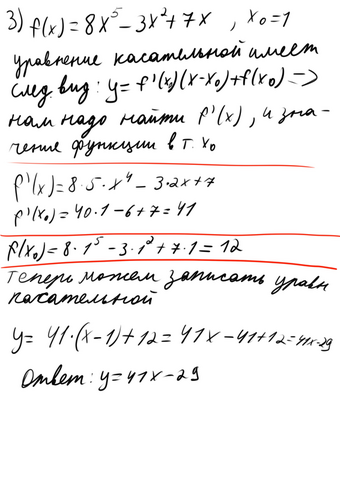 3) f(x) = 8x⁵ − 3x² + 7x , x₀ = 1
уравнение касательной имеет
след. вид: y = f'(x₀)(x−x₀)+f(x₀) −>
нам надо найти f'(x), и зна-
чение функции в т. x₀
f'(x) = 8·5·x⁴ − 3·2x + 7
f'(x₀) = 40·1 − 6 + 7 = 41
f(x₀) = 8·1⁵ − 3·1² + 7·1 = 12
теперь можем записать уравн
касательной
y = 41·(x−1)+12 = 41x − 41+12 = 41x−29
Ответ: y = 41x − 29